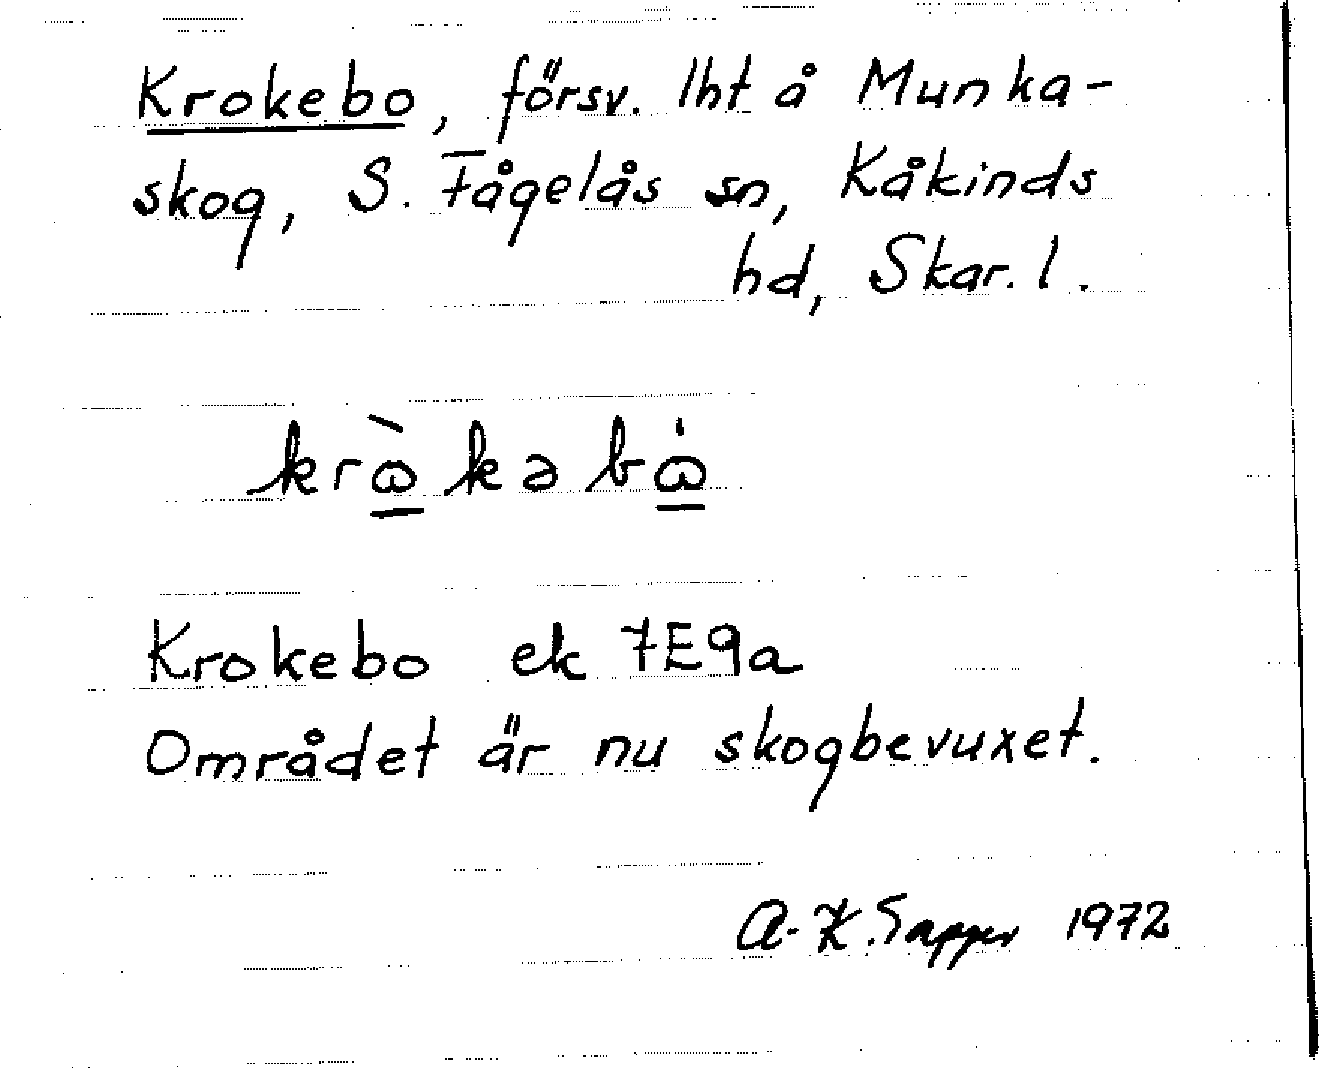 Krokebo, försv. lht å Munka-
skog, S. Fågelås sn, Kåkinds
hd, Skar. l.
krɷ̠̀kəbɷ̠̇
Krokebo ek 7E9a
Området är nu skogbevuxet.
A-K. 1972